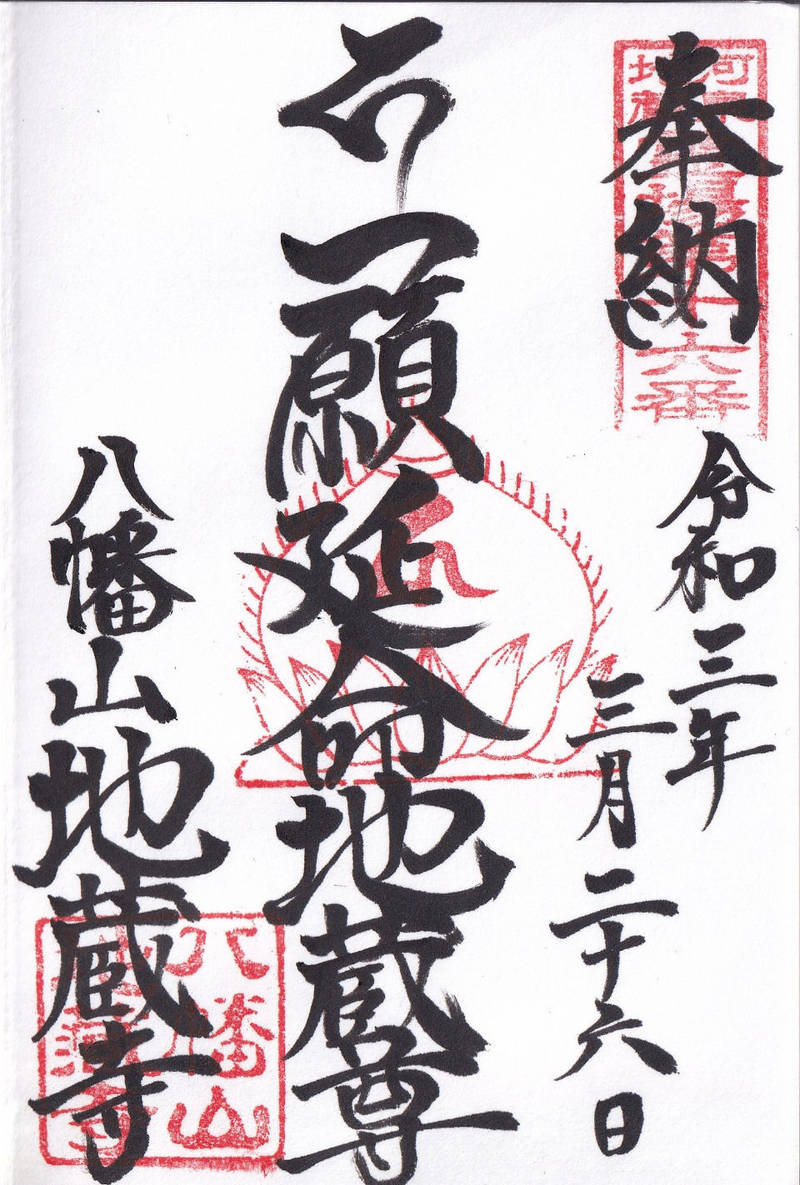 奉納
令和三年
三月二十六日
一願延命地蔵尊
八幡山地蔵寺
八幡山
地蔵寺